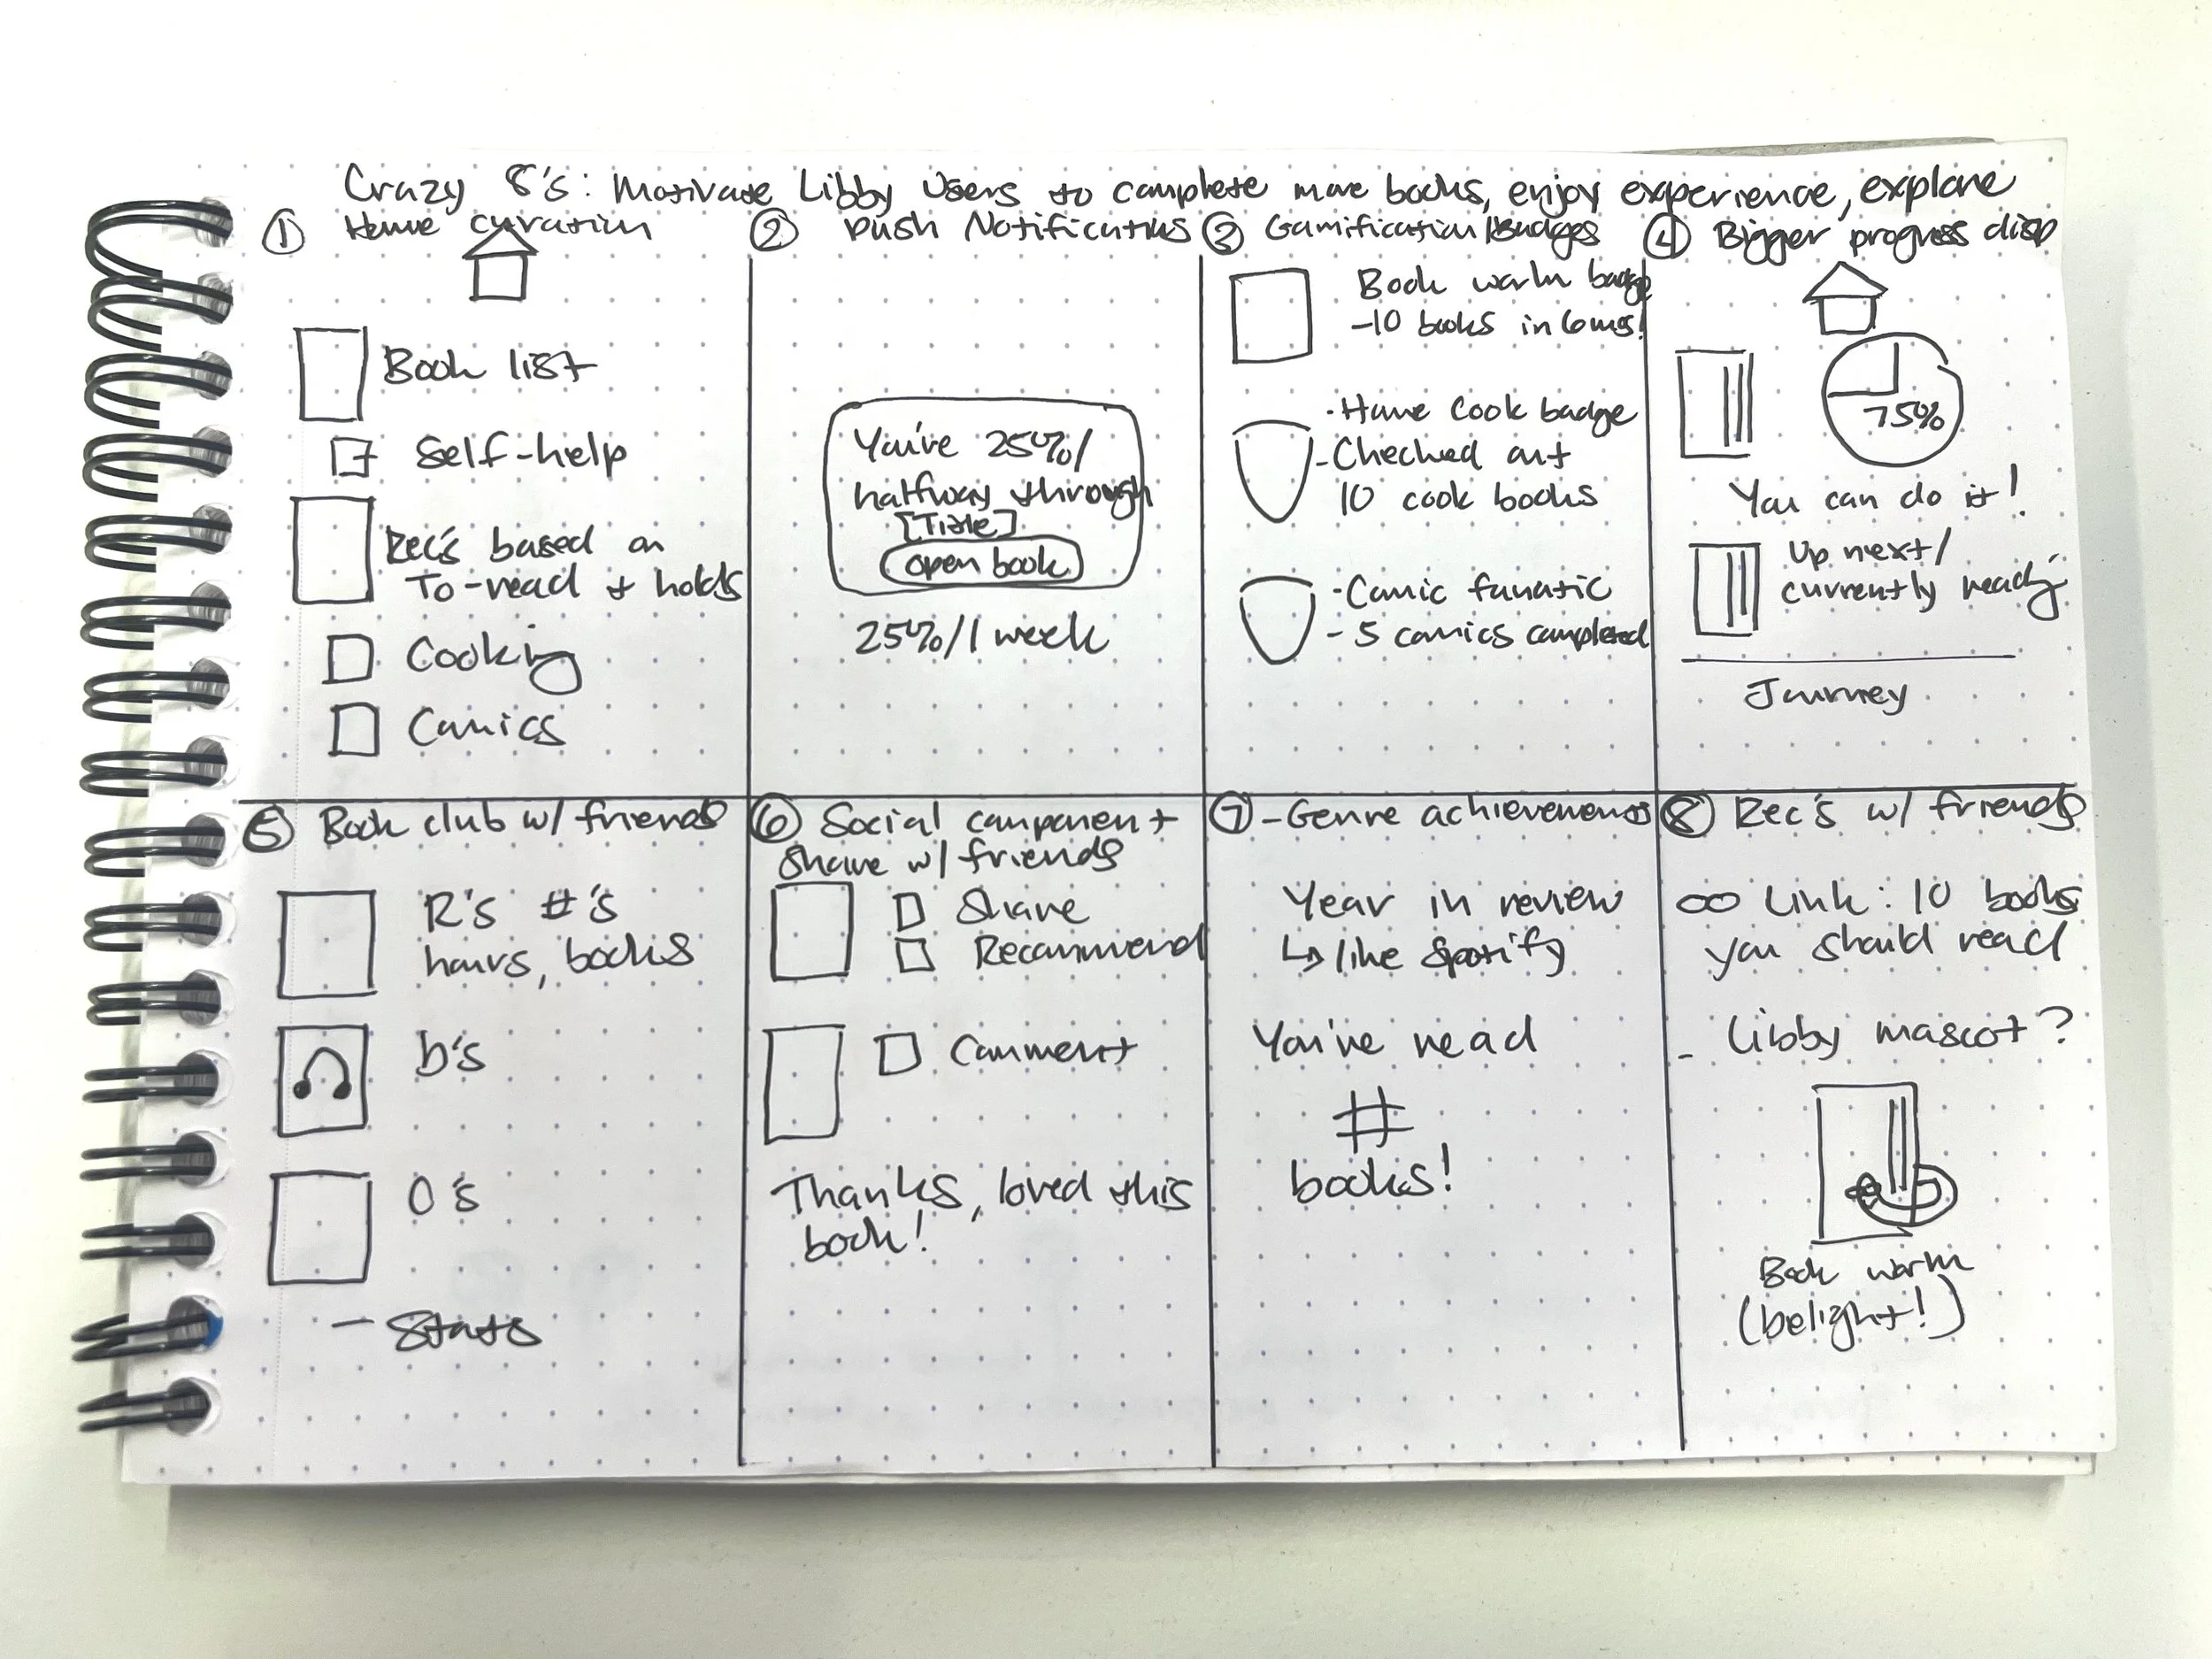 Crazy 8's: Motivate Libby Users to complete more books, enjoy experience, explore
① Home curation
Book list
Self-help
Rec's based on
To-read + holds
Cooking
Comics
② Push Notifications
You've 25%/
halfway through
[Title]
open book
25%/1 week
③ Gamification/Badges
Book worm badge
-10 books in 6mos!
· Home Cook badge
- Checked out
10 cook books
· Comic fanatic
- 5 comics completed
④ Bigger progress disp
75%
You can do it!
Up next/
currently ready
Journey
⑤ Book club w/ friends
R's #'s
hours, books
D's
O's
- Stats
⑥ Social component
Share w/ friends
Share
Recommend
Comment
Thanks, loved this
book!
⑦ - Genre achievements
Year in review
↳ like Spotify
You've read
#
books!
⑧ Rec's w/ friends
Link: 10 books
you should read
- Libby mascot?
Book worm
(Delight!)